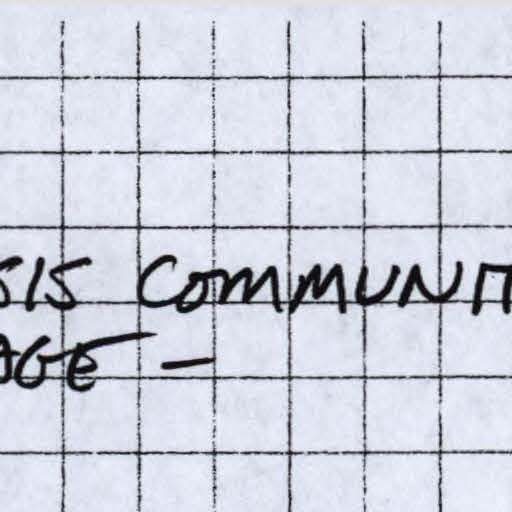 SIS COMMUNIT
AGE –